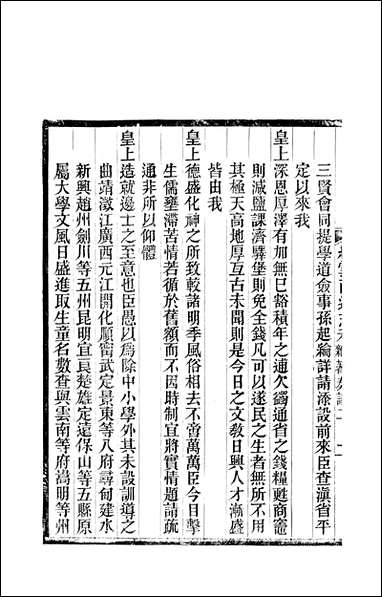 三賢會同提學道僉事孫起綸詳請添設前來臣查滇省平
定以來我
皇上深恩厚澤有加無已豁積年之逋欠蠲通省之錢糧甦商竈
則減鹽課濟驛堡則免全錢凡可以遂民之生者無所不用
其極天高地厚互古未聞則是今日之文敎日興人才漸盛
皆由我
皇上德盛化神之所致較諸明季風俗相去不啻萬萬臣今目擊
生儒壅滯苦情若循於舊額而不因時制宜將實情題請疏
通非所以仰體
皇上造就邊士之至意也臣愚以爲除中小學外其未設訓導之
曲靖澂江廣西元江開化順甯武定景東等八府尋甸建水
新興趙州劍川等五州昆明宜良楚雄定遠保山等五縣原
屬大學文風日盛進取生童名數查與雲南等府嵩明等州